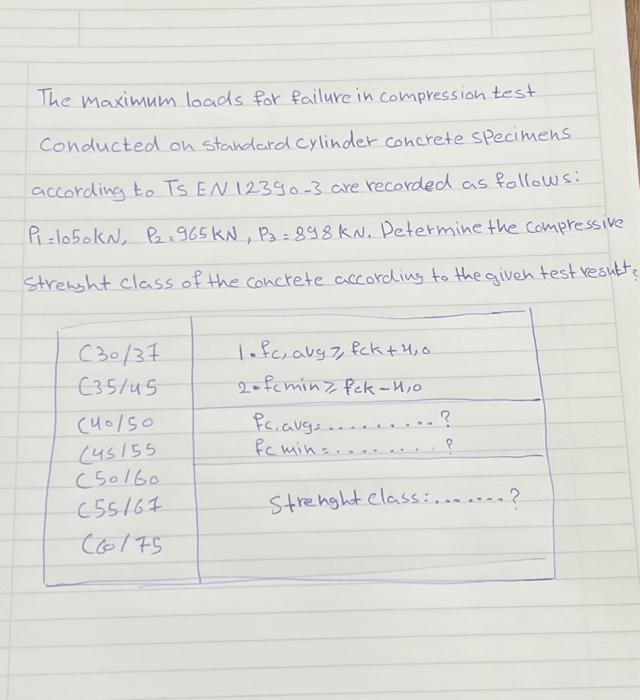 The maximum loads for failure in compression test
Conducted on standard cylinder concrete specimens
according to TS EN 12390-3 are recorded as follows:
P1=1050kN, P2=965kN, P3=898kN. Determine the compressive
Strenght class of the concrete according to the given test result?
C30/37
C35/45
C40/50
C45/55
C50/60
C55/67
C60/75
1. fc,avg ≥ fck+4,0
2- fcmin ≥ fck-4,0
fc,avg= .......... ?
fc min = ........ ?
Strenght class: ....... ?